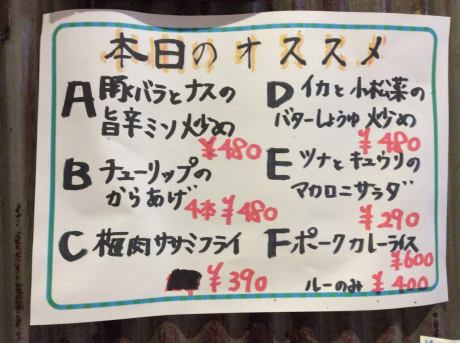 本日のオススメ
A 豚バラとナスの
旨辛ミソ炒め
¥480
B チューリップの
からあげ
4本 ¥480
C 梅肉ササミフライ
¥390
D イカと小松菜の
バターしょうゆ炒め
¥480
E ツナとキュウリの
マカロニサラダ
¥290
F ポークカレーライス
¥600
ルーのみ ¥400